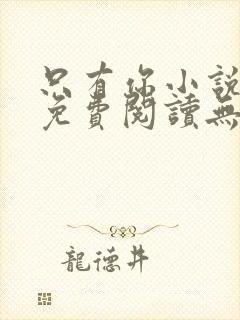 只有你小說
免費閱讀無
龍德井